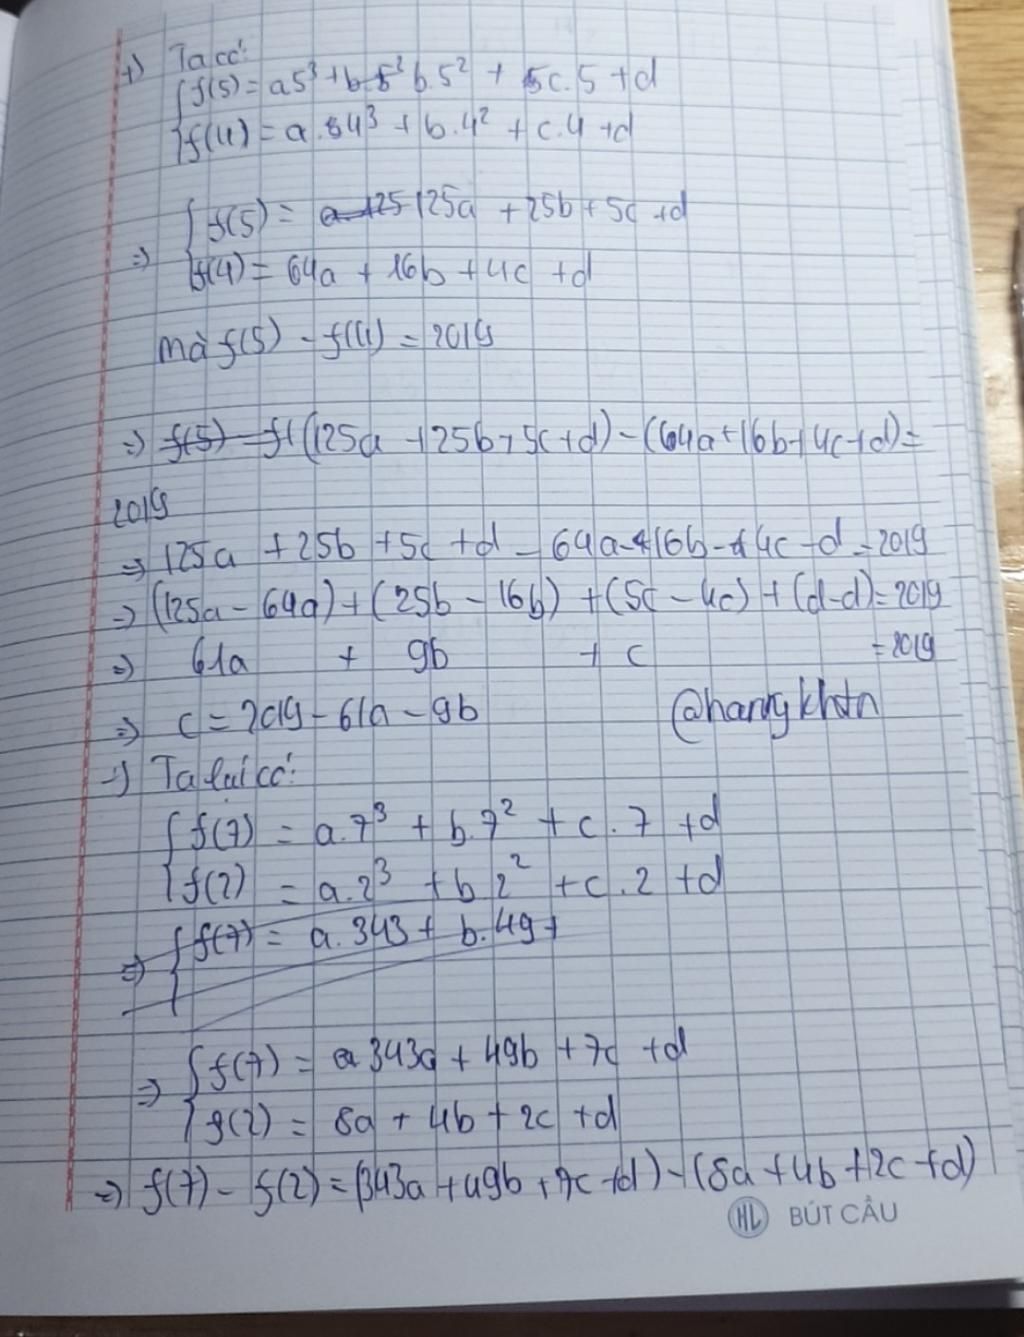 +) Ta có:
f(5) = a5³ + b.5² b.5² + 5c.5 + d
f(4) = a.84³ + b.4² + c.4 + d
=> f(5) = a 125 125a + 25b + 5c + d
f(4) = 64a + 16b + 4c + d
mà f(5) - f(4) = 2019
=> f(5) - f( (125a + 25b + 5c + d) - (64a + 16b + 4c + d) =
2019
=> 125a + 25b + 5c + d - 64a - 16b - 4c - d = 2019
=> (125a - 64a) + (25b - 16b) + (5c - 4c) + (d - d) = 2019
=> 61a + 9b + c = 2019
=> c = 2019 - 61a - 9b @hanngkhtn
-) Ta lại có:
f(7) = a.7³ + b.7² + c.7 + d
f(2) = a.2³ + b 2² + c.2 + d
=> f(7) = a.343 + b.49 +
=> f(7) = a 343a + 49b + 7c + d
f(2) = 8a + 4b + 2c + d
=> f(7) - f(2) = (343a + 49b + 7c + d) - (8a + 4b + 2c + d)
HL BÚT CÂU